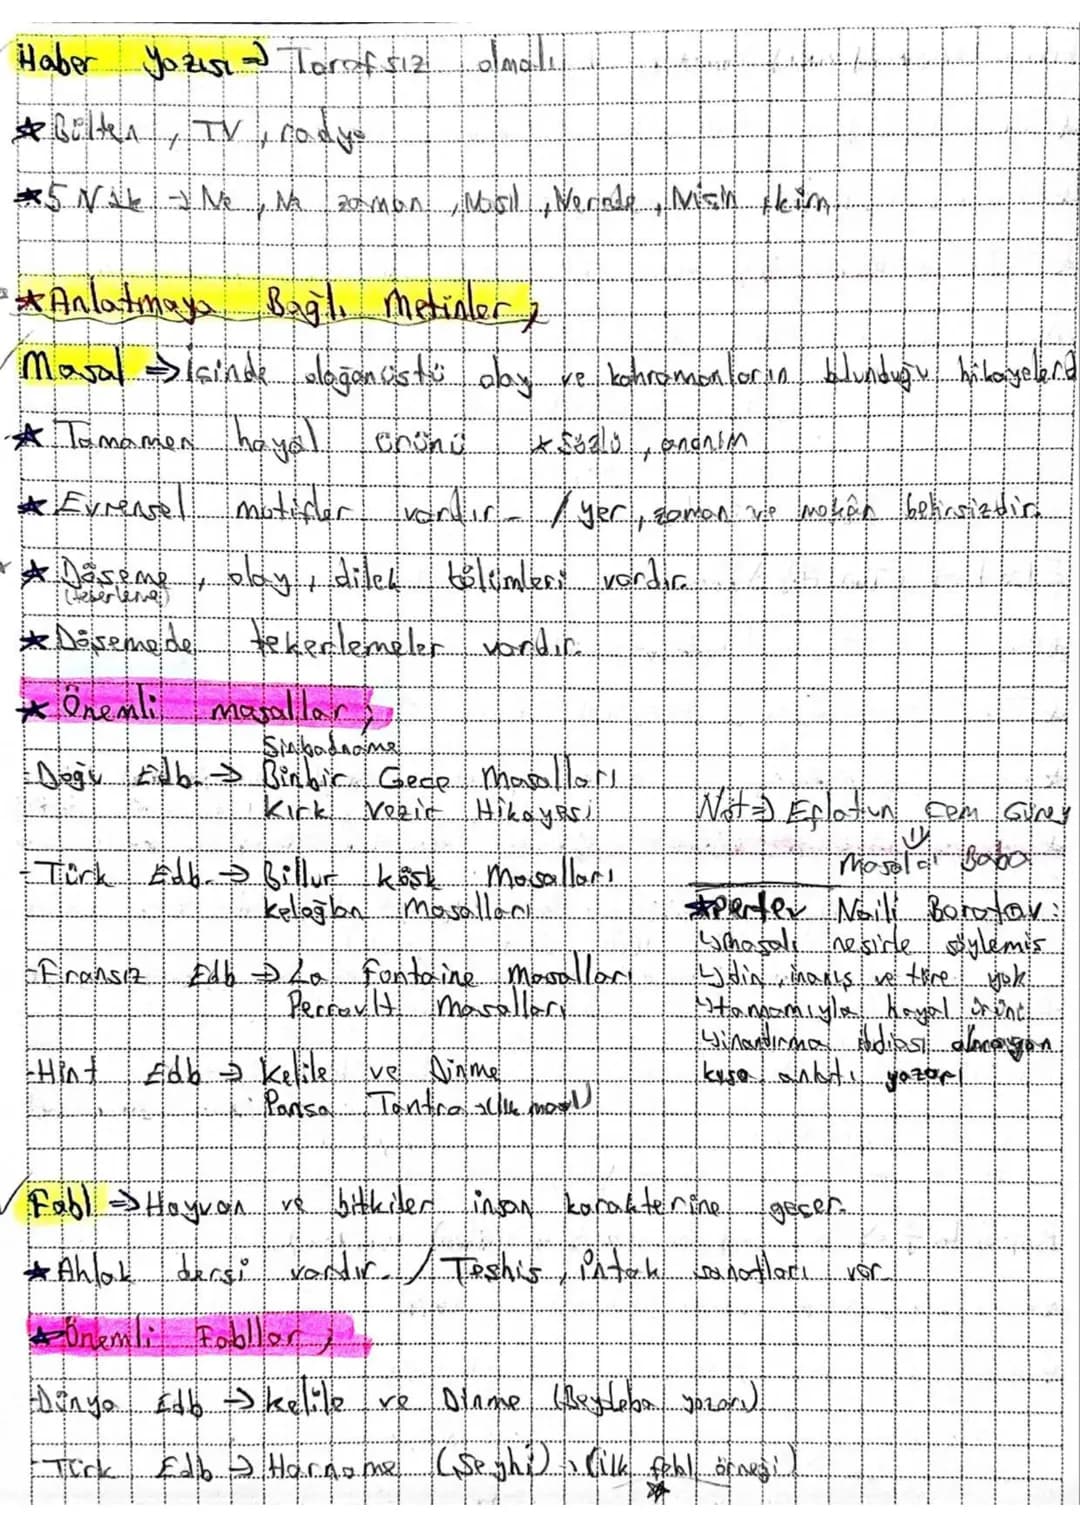 Haber Yazısı ⇒ Tarafsız olmalı
★ Bülten, TV, radyo
★ 5N1K → Ne, Ne zaman, Nasıl, Nerede, Niçin, kim
★ Anlatmaya Bağlı Metinler;
Masal ⇒ İçinde olağanüstü olay ve kahramanların bulunduğu hikayelerd
★ Tamamen hayal ürünü ★ Sözlü, anonim
★ Evrensel motifler vardır. / yer, zaman ve mekân belirsizdir.
★ Döşeme, olay, dilek bölümleri vardır.
(tekerleme)
★ Döşemede tekerlemeler vardır.
★ Önemli masallar;
Sinbadname
- Doğu Edb. → Binbir Gece Masalları
Kırk Vezir Hikayesi
- Türk Edb. → Billur köşk Masalları
Keloğlan Masalları
- Fransız Edb → La Fontaine Masalları
Perrault Masalları
- Hint Edb → Kelile ve Dinme
Pança Tantra → (ilk masal)
Not ⇒ Eflatun Cem Güney
⇓
Masalcı Baba
★ Pertev Naili Boratav:
↳ masalı nesirle söylemiş
↳ din, inanış ve töre yok
↳ tamamıyla hayal ürünü
↳ inandırma iddiası olmayan
kısa anlatı yazarı
Fabl ⇒ Hayvan ve bitkiler insan karakterine geçer.
★ Ahlak dersi vardır. / Teşhis, intak sanatları var.
★ Önemli Fabllar;
- Dünya Edb → Kelile ve Dinme (Beydeba yazarı)
- Türk Edb → Harname (Şeyhi) → (ilk fabl örneği)
★